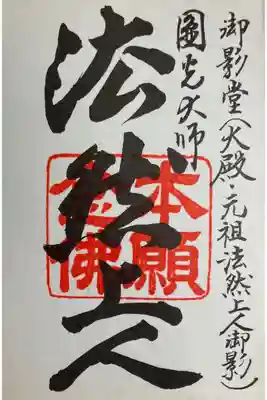 御影堂(大殿・元祖法然上人御影)
圓光大師
法然上人
本願
佛